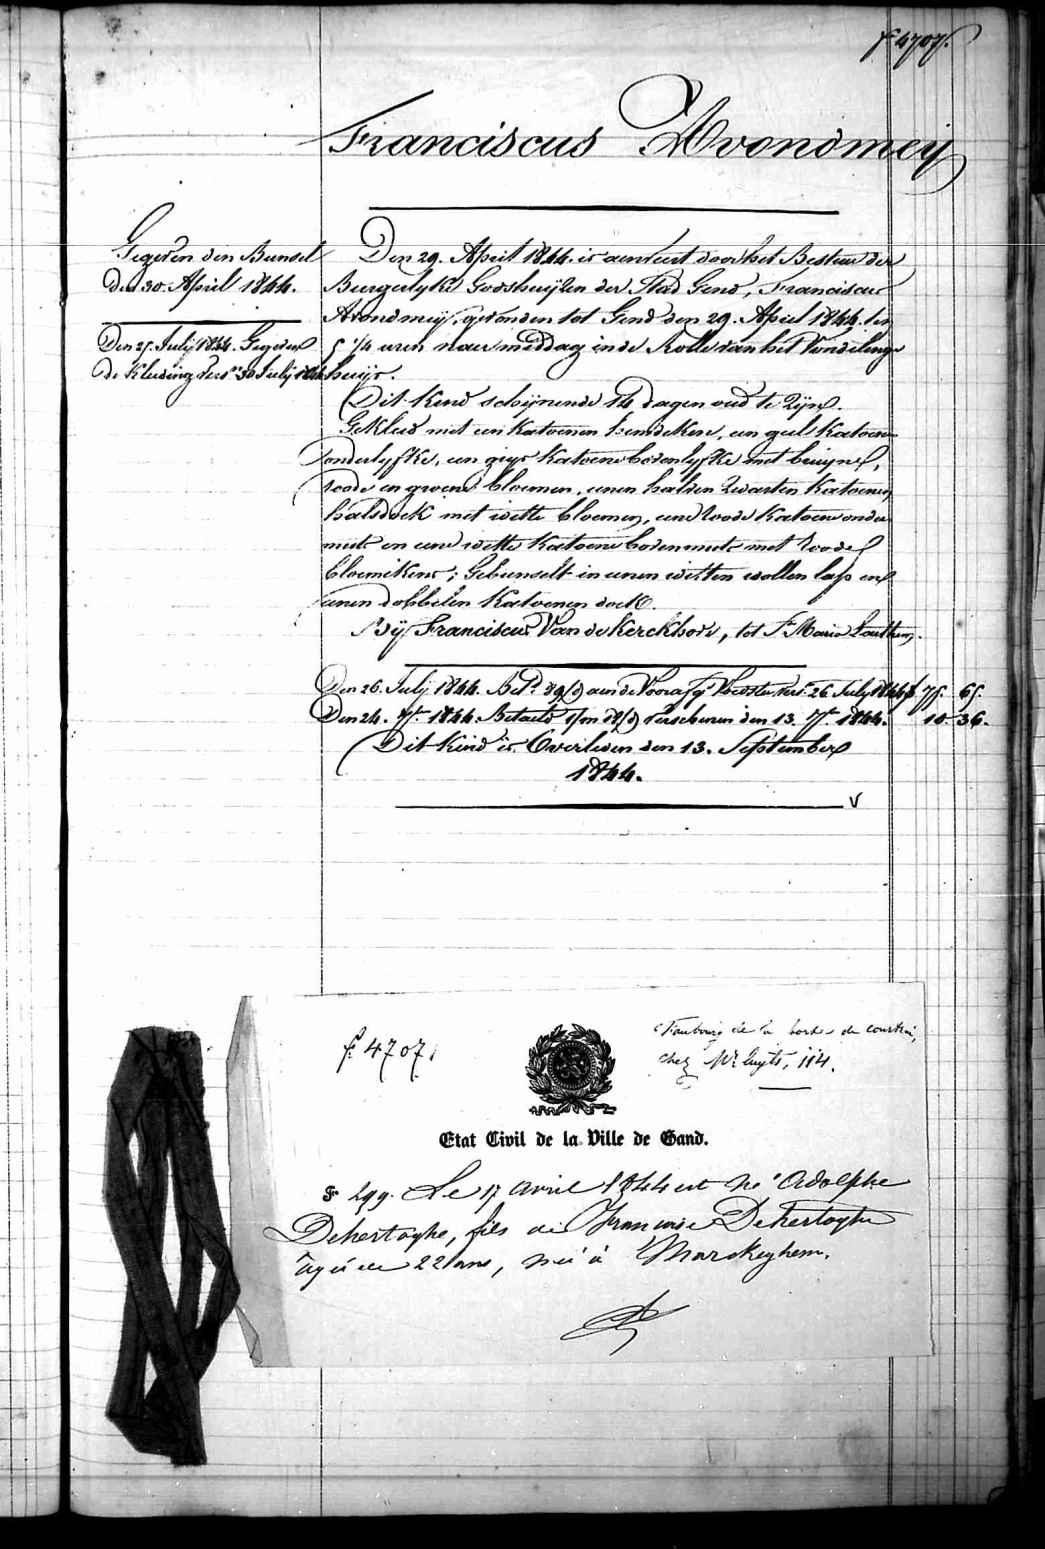 f° 4707.
Franciscus Avondmeij
Gegeven den Bunsel
den 30. April 1844.
Den 25. Julij 1844. Gegeven
de Kleeding 30 Julij 1844
Den 29. April 1844. is aenveirt door het Bestuur der
Burgerlyke Godshuijzen der Stad Gend, Franciscus
Avondmeij, gevonden tot Gend den 29. April 1844. ten
5 1/4 uren naer middag in de Rolle van het Vondelinge
huijs.
Dit Kind schijnende 14 dagen oud te Zijn.
Gekleed met een Katoenen hemdeken, een geel Katoen
onderlyfke, een grys Katoene bovenlyfke met bruijne,
roode en groene bloemen, eenen halven Zwarten Katoenen
halsdoek met witte bloemen, eene roode Katoene onder
muts en eene witte Katoene bovenmuts met roode
bloemikens; Gebunselt in eenen witten wollen lap en
eenen dobbelen Katoenen doek.
Bij Franciscus Van de Kerckhove, tot St Maria Lauthem.
Den 26. Julij 1844. aen de Voedster 26 July 1844 75. 65.
Den 24. 7br. 1844. Betaeld verschenen den 13. 7br 1844. 10 36.
Dit Kind is Overleden den 13. September
1844.
f. 4707.
Faubourg de la porte de courtrai,
chez Mr 114.
Etat Civil de la Ville de Gand.
F 299. Le 17 avril 1844 est né Adolphe
Dehertoghe, fils de Francoise Dehertoghe
agée de 22 ans, née à Marckeghem.